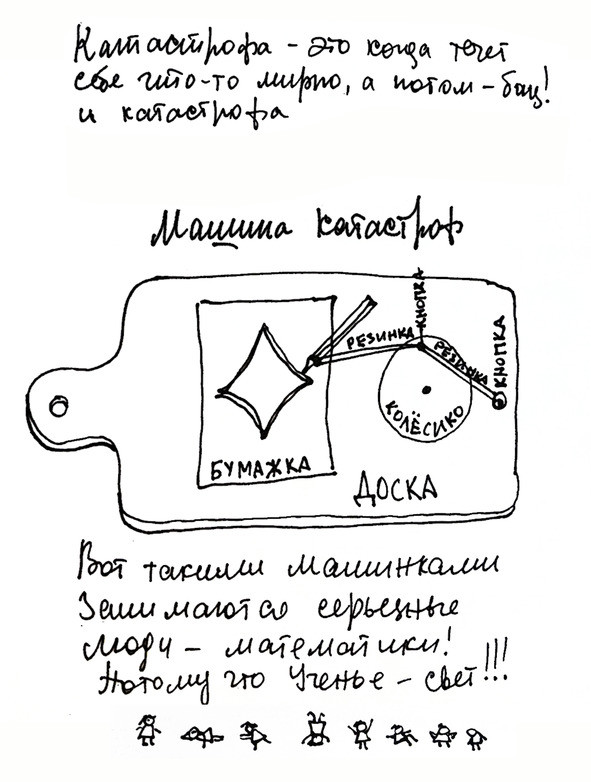 Катастрофа - это когда течет
себе что-то мирно, а потом - бац!
и катастрофа
Машина катастроф
КНОПКА
РЕЗИНКА
РЕЗИНКА
КНОПКА
КОЛЁСИКО
БУМАЖКА
ДОСКА
Вот такими машинками
Занимаются серьезные
люди - математики!
Потому что Ученье - свет!!!